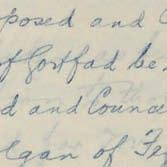 posed and
of Gortfad be
d and Counc
lgan of Te